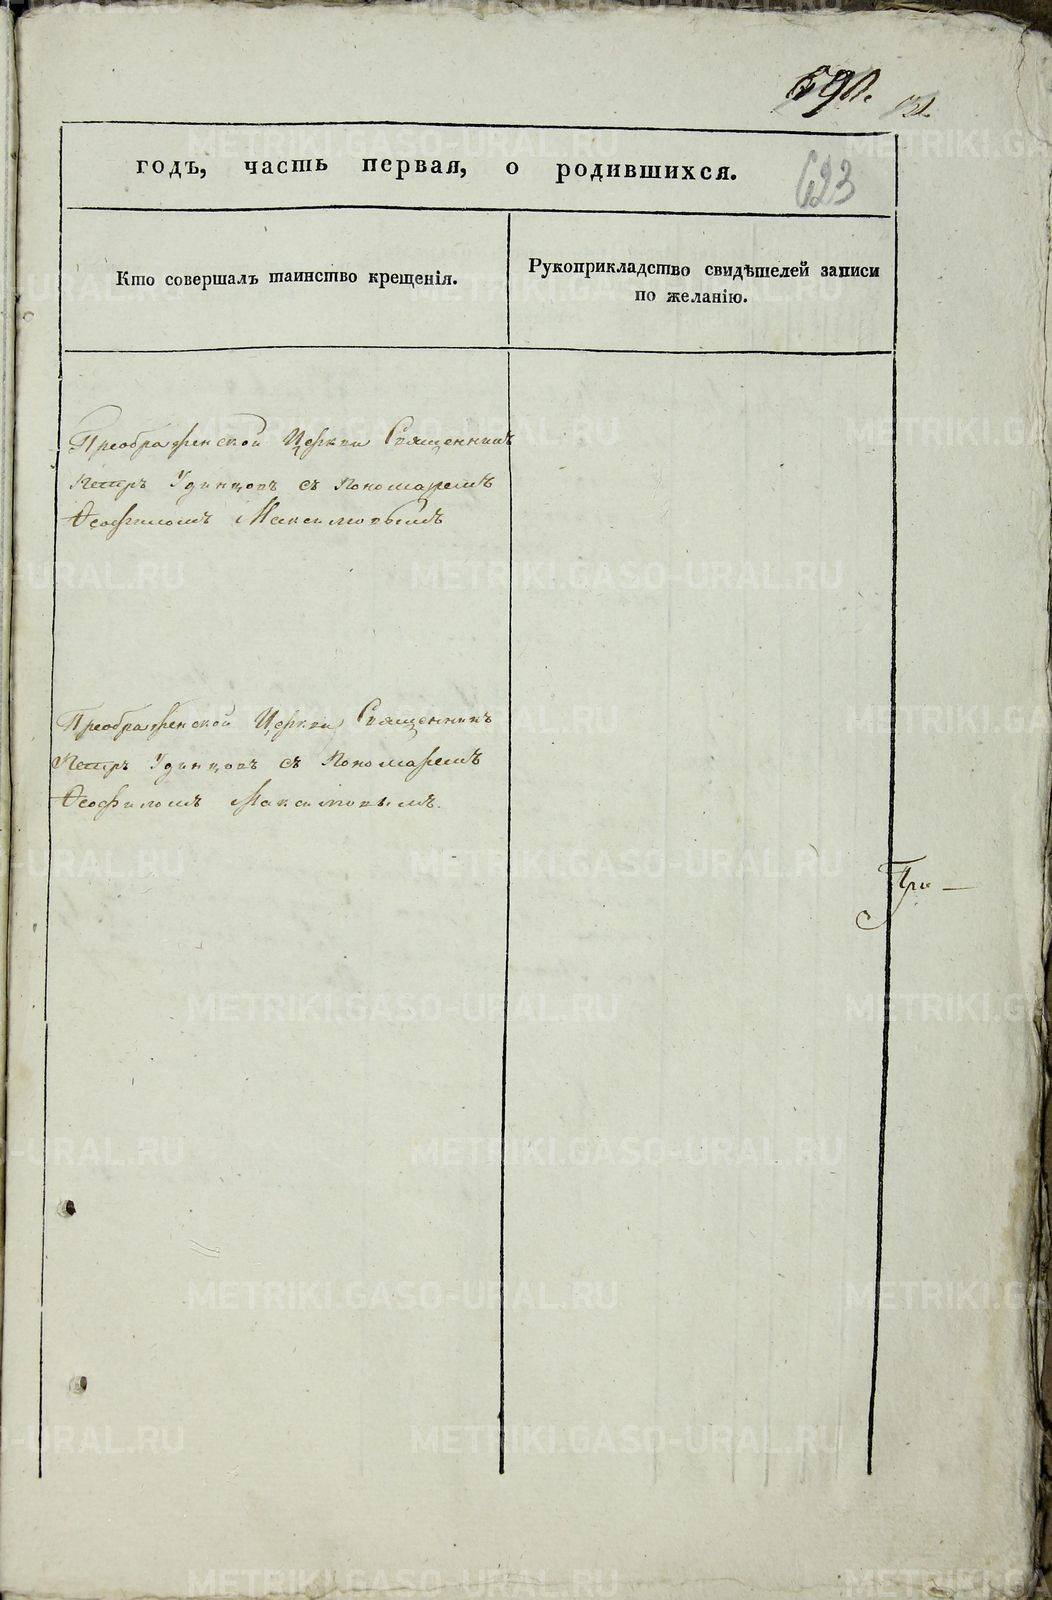 623
годъ, часть первая, о родившихся.
Кто совершалъ таинство крещенія.
Рукоприкладство свидѣтелей записи
по желанію.
Преображенской Церкви Священникъ
Петръ Удинцовъ съ Пономаремъ
Ѳеофиломъ Максимовымъ
Преображенской Церкви Священникъ
Петръ Удинцовъ съ Пономаремъ
Ѳеофиломъ Максимовымъ.
При —
METRIKI.GASO-URAL.RU